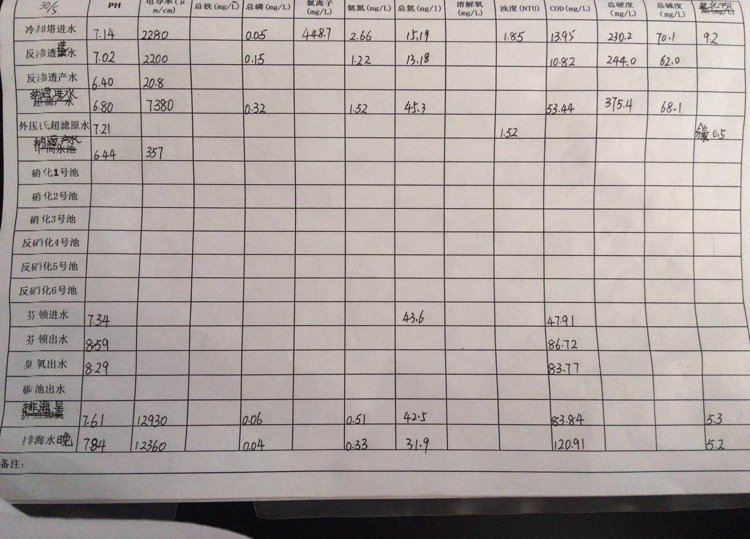 30/5 PH 电导率(μm/cm) 总铁(mg/L) 总磷(mg/L) 氯离子(mg/L) 氨氮(mg/L) 总氮(mg/L) 溶解氧(mg/L) 浊度(NTU) COD(mg/L) 总硬度(mg/L) 总碱度(mg/L)
冷却塔进水 7.14 2280 0.05 448.7 2.66 15.19 1.85 13.95 230.2 70.1 9.2
反渗透水 7.02 2200 0.15 1.22 13.18 10.82 244.0 62.0
反渗透产水 6.40 20.8
纳滤进水 6.80 7380 0.32 1.52 45.3 53.44 375.4 68.1
外压式超滤原水 7.21 1.52 0.5
纳滤产水 6.44 357
硝化1号池
硝化2号池
硝化3号池
反硝化4号池
反硝化5号池
反硝化6号池
芬顿进水 7.34 43.6 47.91
芬顿出水 8.59 86.72
臭氧出水 8.29 83.77
碳池出水
排海早 7.61 12930 0.06 0.51 42.5 83.84 5.3
排海水晚 7.84 12360 0.04 0.33 31.9 120.91 5.2
备注: